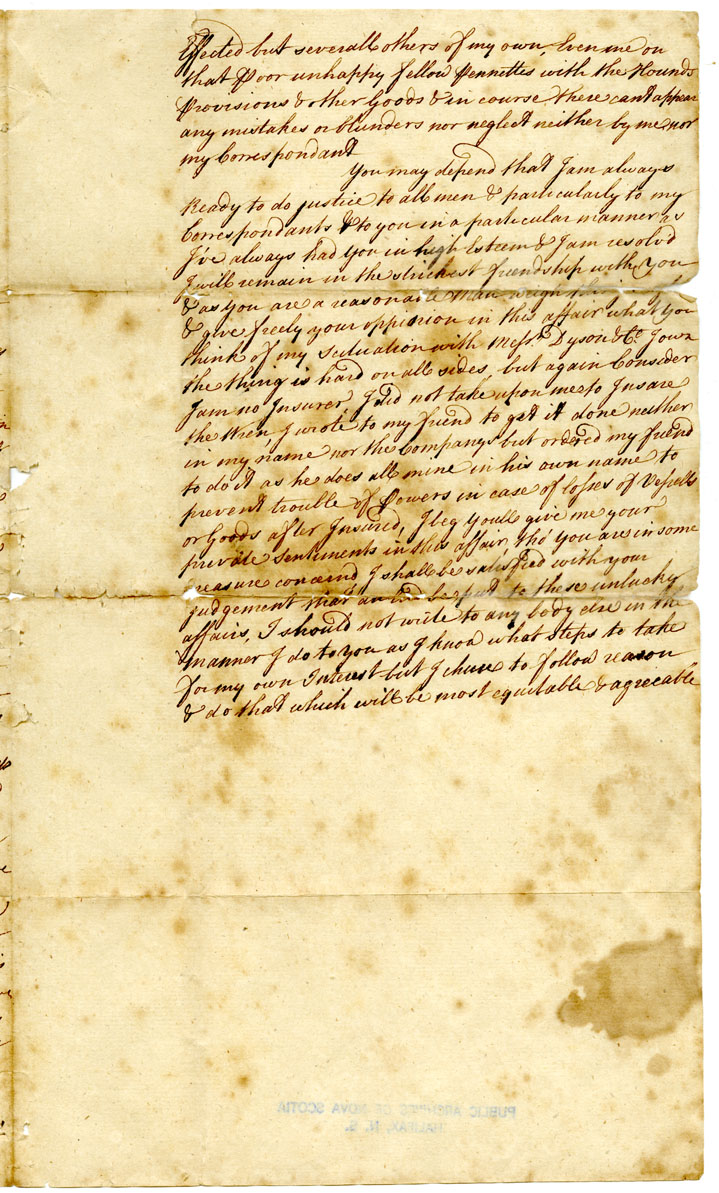 Effected but severall others of my own, Even me on
that Poor unhappy fellow Pennettes with the Hounds
Provisions & other Goods & in course there cant appear
any mistakes or blunders nor neglect neither by me nor
my Correspondant
You may depend that I am always
Ready to do justice to all men & particularly to my
Correspondants & to you in a particular manner as
I've always had you in high Esteem & I am resolv'd
I will remain in the strickest friendship with you
& as you are a reasonable Man weigh
& give freely your oppinion in this affair what you
think of my Scituation with Messrs. Dyson & Co. I own
the thing is hard on all sides, but again Consider
I am no Insurer, I did not take upon me to Insure
the When I wrote to my friend to get it done neither
in my name nor the Companys but ordered my friend
to do it as he does all mine in his own name to
prevent trouble of Powers in case of losses of Vessells
or Goods after Insured, I beg youll give me your
private Sentiments in this affair, tho' you are in some
measure concernd I shall be satisfied with your
judgement that an be put to these unlucky
affairs, I should not write to any body else in the
manner I do to you as I know what steps to take
for my own Interest but I chuse to follow reason
& do that which will be most equitable & agreeable
PUBLIC ARCHIVES OF NOVA SCOTIA
HALIFAX, N. S.